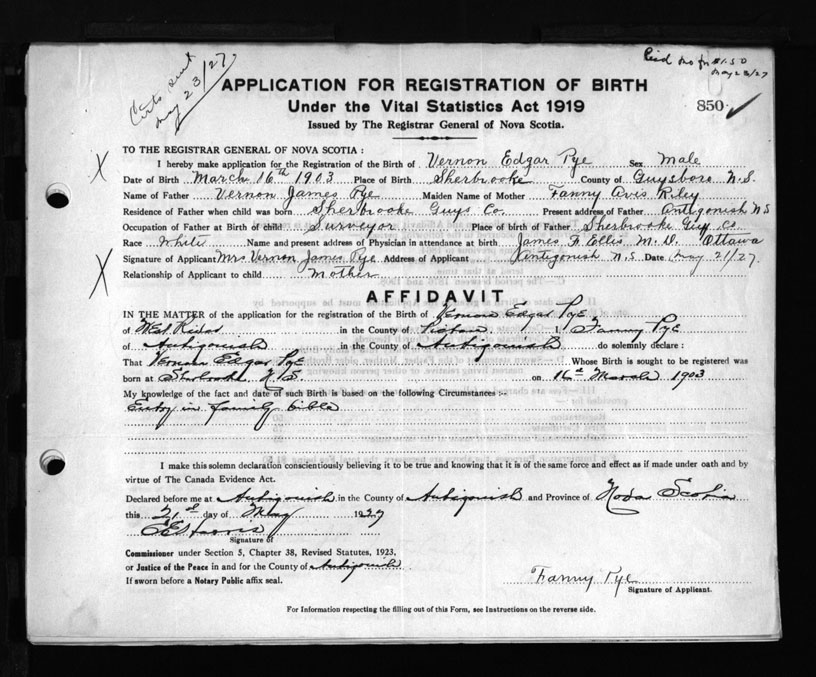 Certs sent
May 23/27
Recd mo for $1.50
May 23/27
APPLICATION FOR REGISTRATION OF BIRTH
Under the Vital Statistics Act 1919
850 ✓
Issued by The Registrar General of Nova Scotia.
TO THE REGISTRAR GENERAL OF NOVA SCOTIA :
X I hereby make application for the Registration of the Birth of Vernon Edgar Pye Sex Male
Date of Birth March 16th 1903 Place of Birth Sherbrooke County of Guysboro N.S.
Name of Father Vernon James Pye Maiden Name of Mother Fanny Avis Riley
Residence of Father when child was born Sherbrooke Guys Co. Present address of Father Antigonish N S
Occupation of Father at Birth of child Surveyor Place of birth of Father Sherbrooke Guy Co.
Race White Name and present address of Physician in attendance at birth James F. Ellis M. D. Ottawa
X Signature of Applicant Mrs Vernon James Pye Address of Applicant Antigonish N.S Date May 21/27.
Relationship of Applicant to child Mother
AFFIDAVIT
IN THE MATTER of the application for the registration of the Birth of Vernon Edgar Pye
of West in the County of Pictou I, Fanny Pye
of Antigonish in the County of Antigonish do solemnly declare :
That Vernon Edgar Pye Whose Birth is sought to be registered was
born at Sherbrooke N.S. on 16th March 1903
My knowledge of the fact and date of such Birth is based on the following Circumstances :-
Entry in family bible
I make this solemn declaration conscientiously believing it to be true and knowing that it is of the same force and effect as if made under oath and by
virtue of The Canada Evidence Act.
Declared before me at Antigonish in the County of Antigonish and Province of Nova Scotia
this 21st day of May 1927
Signature of
Commissioner under Section 5, Chapter 38, Revised Statutes, 1923,
or Justice of the Peace in and for the County of Antigonish
If sworn before a Notary Public affix seal.
Fanny Pye
Signature of Applicant.
For Information respecting the filling out of this Form, see Instructions on the reverse side.